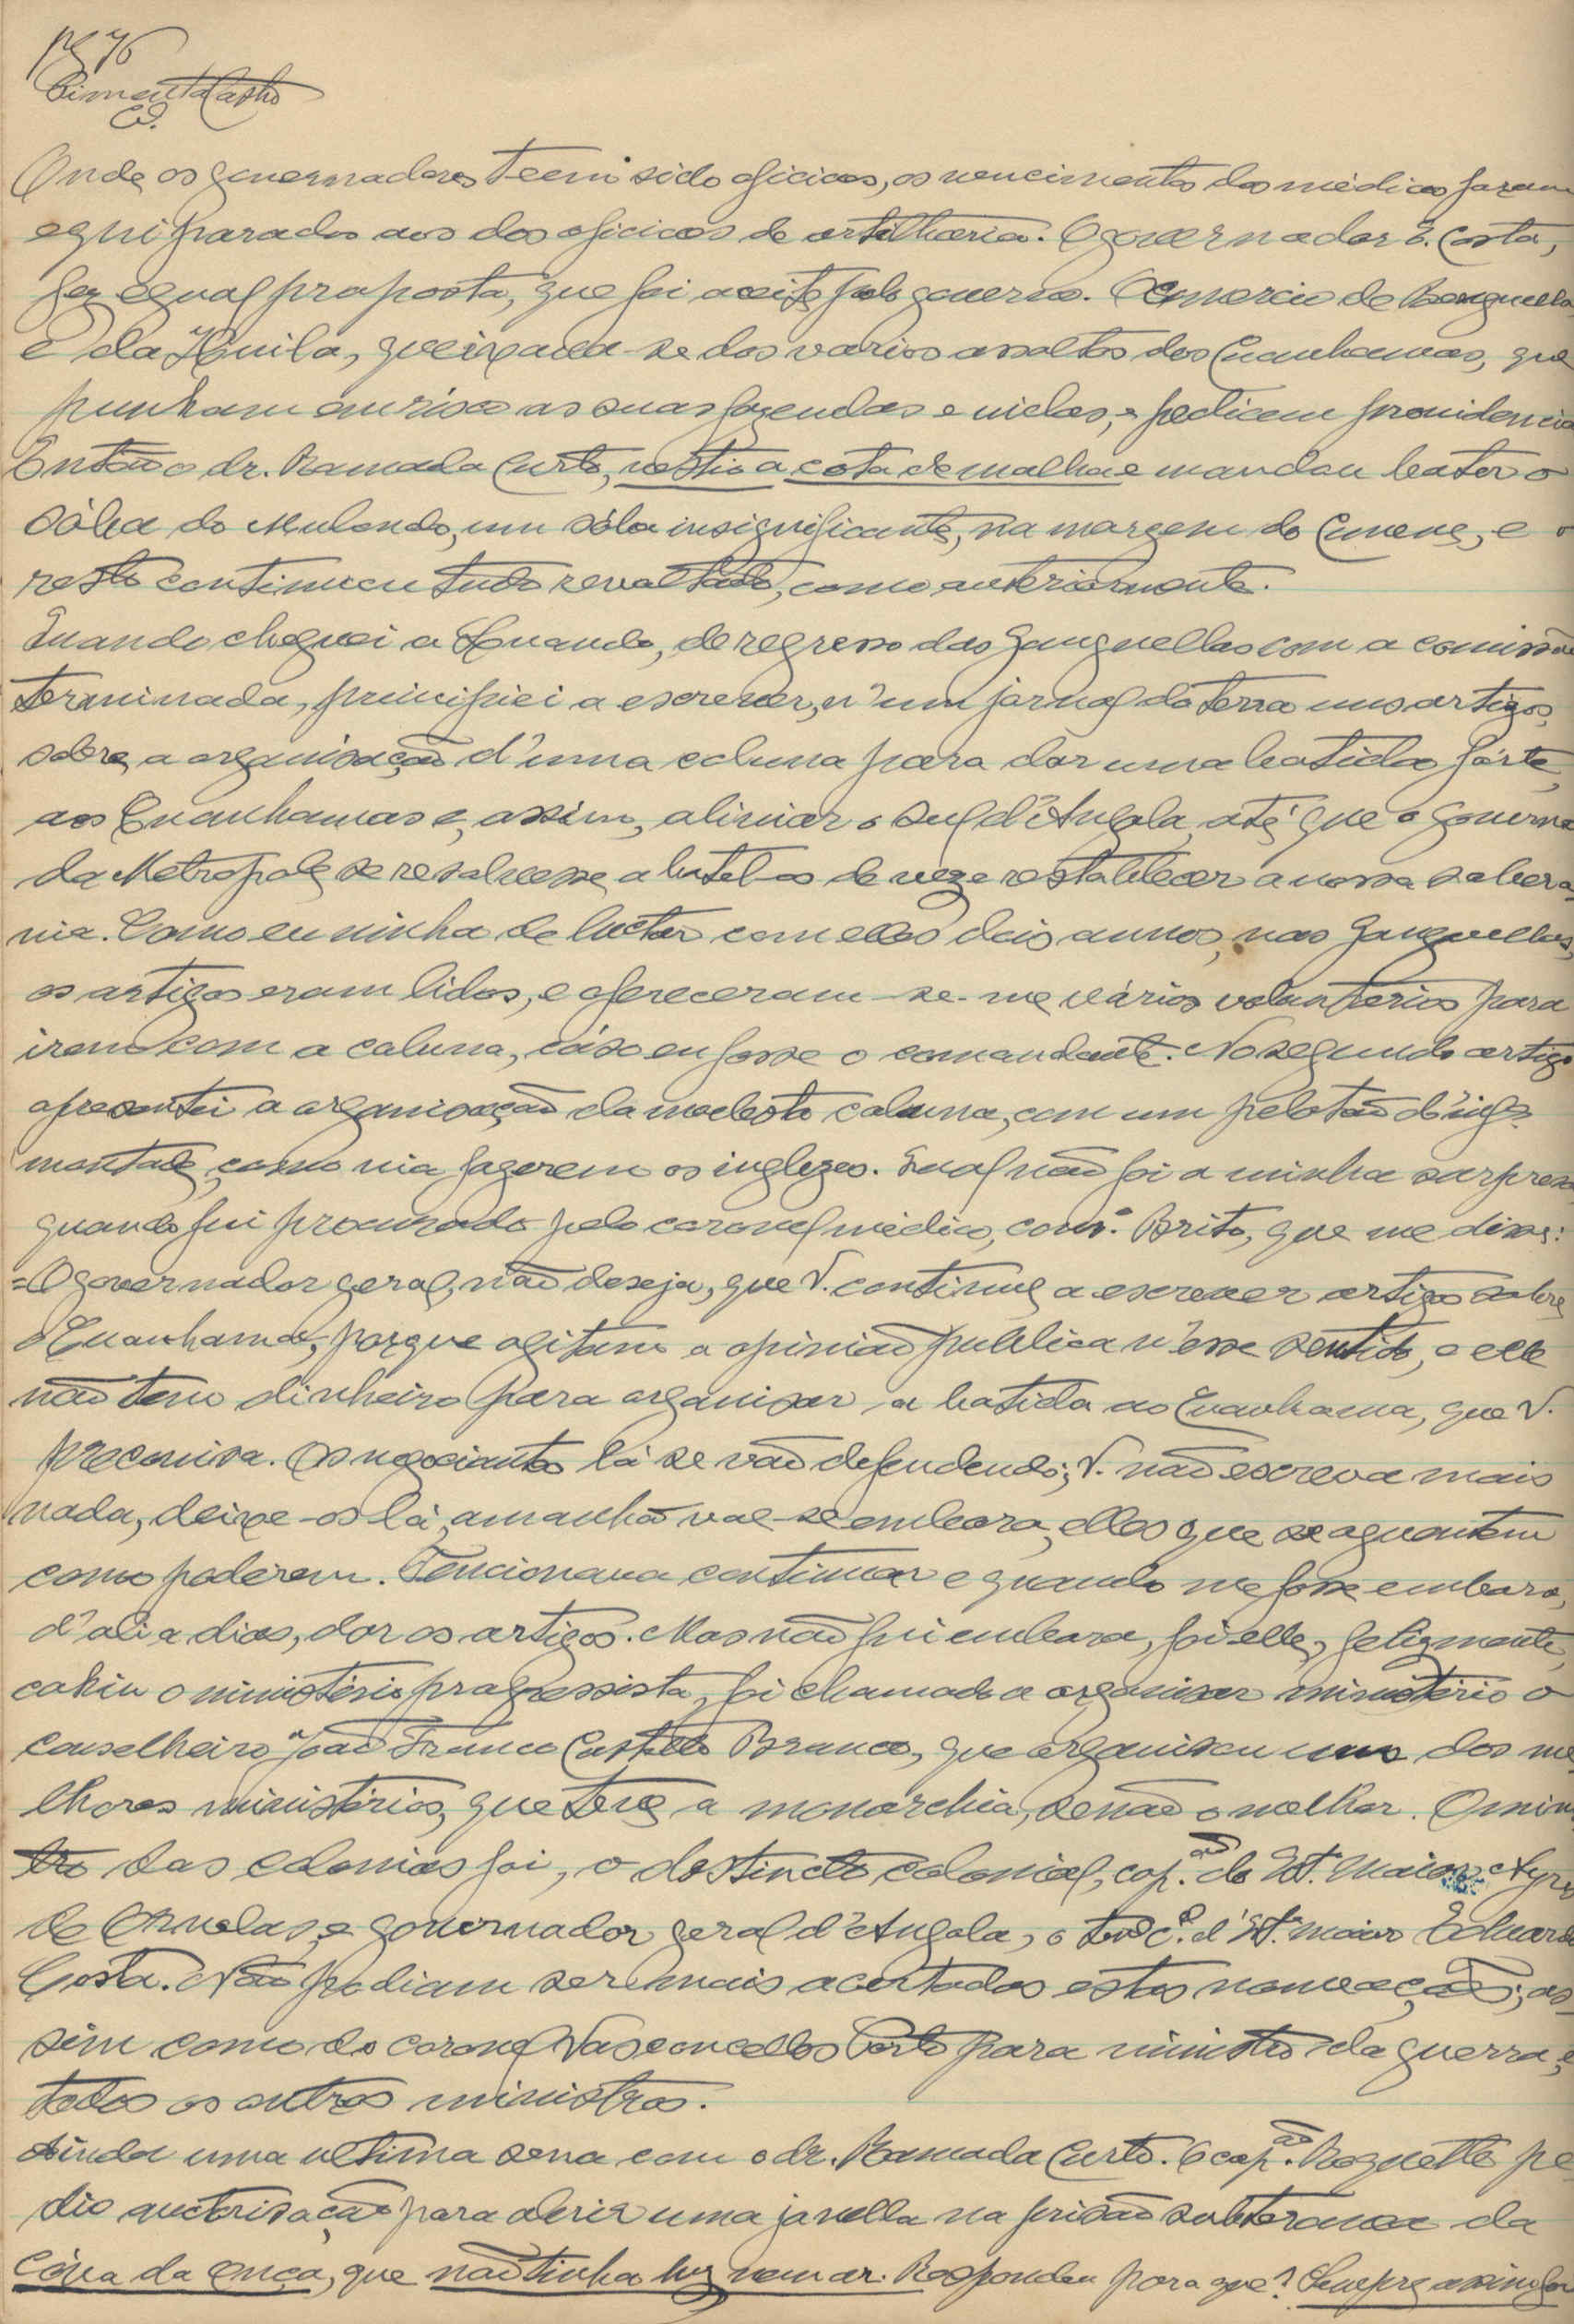 pg 76
Pimenta Castro
Onde os governadores teem sido oficiaes, os vencimentos dos médicos foram
equiparados aos dos oficiaes de artilharia. O governador E. Costa,
fez egual proposta, que foi aceite pelo governo. O comercio de Benguella
e da Huila, queixava-se dos varios assaltos dos Cuanhamas, que
punham em risco as suas fazendas e vidas, e pediam providencia
Então o dr. Ramada Curto, vestiu a cota de malha e mandou bater o
sóba do Mulondo, um sóba insignificante, na margem do Cunene, e o
resto continuou tudo revoltado, como anteriormente.
Quando cheguei a Loanda, de regresso das Ganguellas com a comissão
terminada, principiei a escrever, n'um jornal da terra uns artigos,
sobre a organisação d'uma coluna para dar uma batida fórte
aos Cuanhamas e, assim, aliviar o sul d'Angola, até que o governo
da Metropole se resolvesse a batel-os de vez e restabelecer a nossa sobera-
nia. Como eu vinha de luctar com elles dois annos, nas Ganguellas,
os artigos eram lidos, e ofereceram-se-me vários voluntarios para
irem com a coluna, cáso eu fosse o comandante. No segundo artigo
apresentei a organisação da modesta coluna, com um pelotão d'inf.ª
montada, como via fazerem os inglezes. Qual não foi a minha surpresa
quando fui procurado pelo coronel médico, cons.º Brito, que me disse:
=O governador geral, não deseja, que V. continue a escrever artigos sobre
o Cuanhama, porque agitam a opinião publica n'esse sentido, e elle
não tem dinheiro para organisar, a batida ao Cuanhama, que V.
preconisa. Os negociantes lá se vão defendendo; V. não escreva mais
nada, deixe-os lá, amanhã vae-se embora, elles que se aguentem
como poderem. Tencionava continuar e quando me fosse embora,
d'ali a dias, dar os artigos. Mas não fui embora, foi elle, felizmente,
cahiu o ministério progressista, foi chamado a organisar ministério o
conselheiro João Franco Castello Branco, que organisou um dos me-
lhores ministérios, que teve a monarchia, senão o melhor. O minis-
tro das colonias foi, o destincto colonial, cap.ão do Est.º Maior Ayres
de Ornelas, e governador geral d'Angola, o ten.e c.el d'Est.º maior Eduardo
Costa. Não podiam ser mais acertadas estas nomeações; as-
sim como do coronel Vasconcellos Porto para ministro da guerra, e
todos os outros ministros.
Ainda uma ultima cena com o dr. Ramada Curto. O cap.ão Roquette pe-
diu auctorisação para abrir uma janella na prisão subterranea da
Cóva da Onça, que não tinha luz nem ar. Respondeu para que? Sempre assim foi